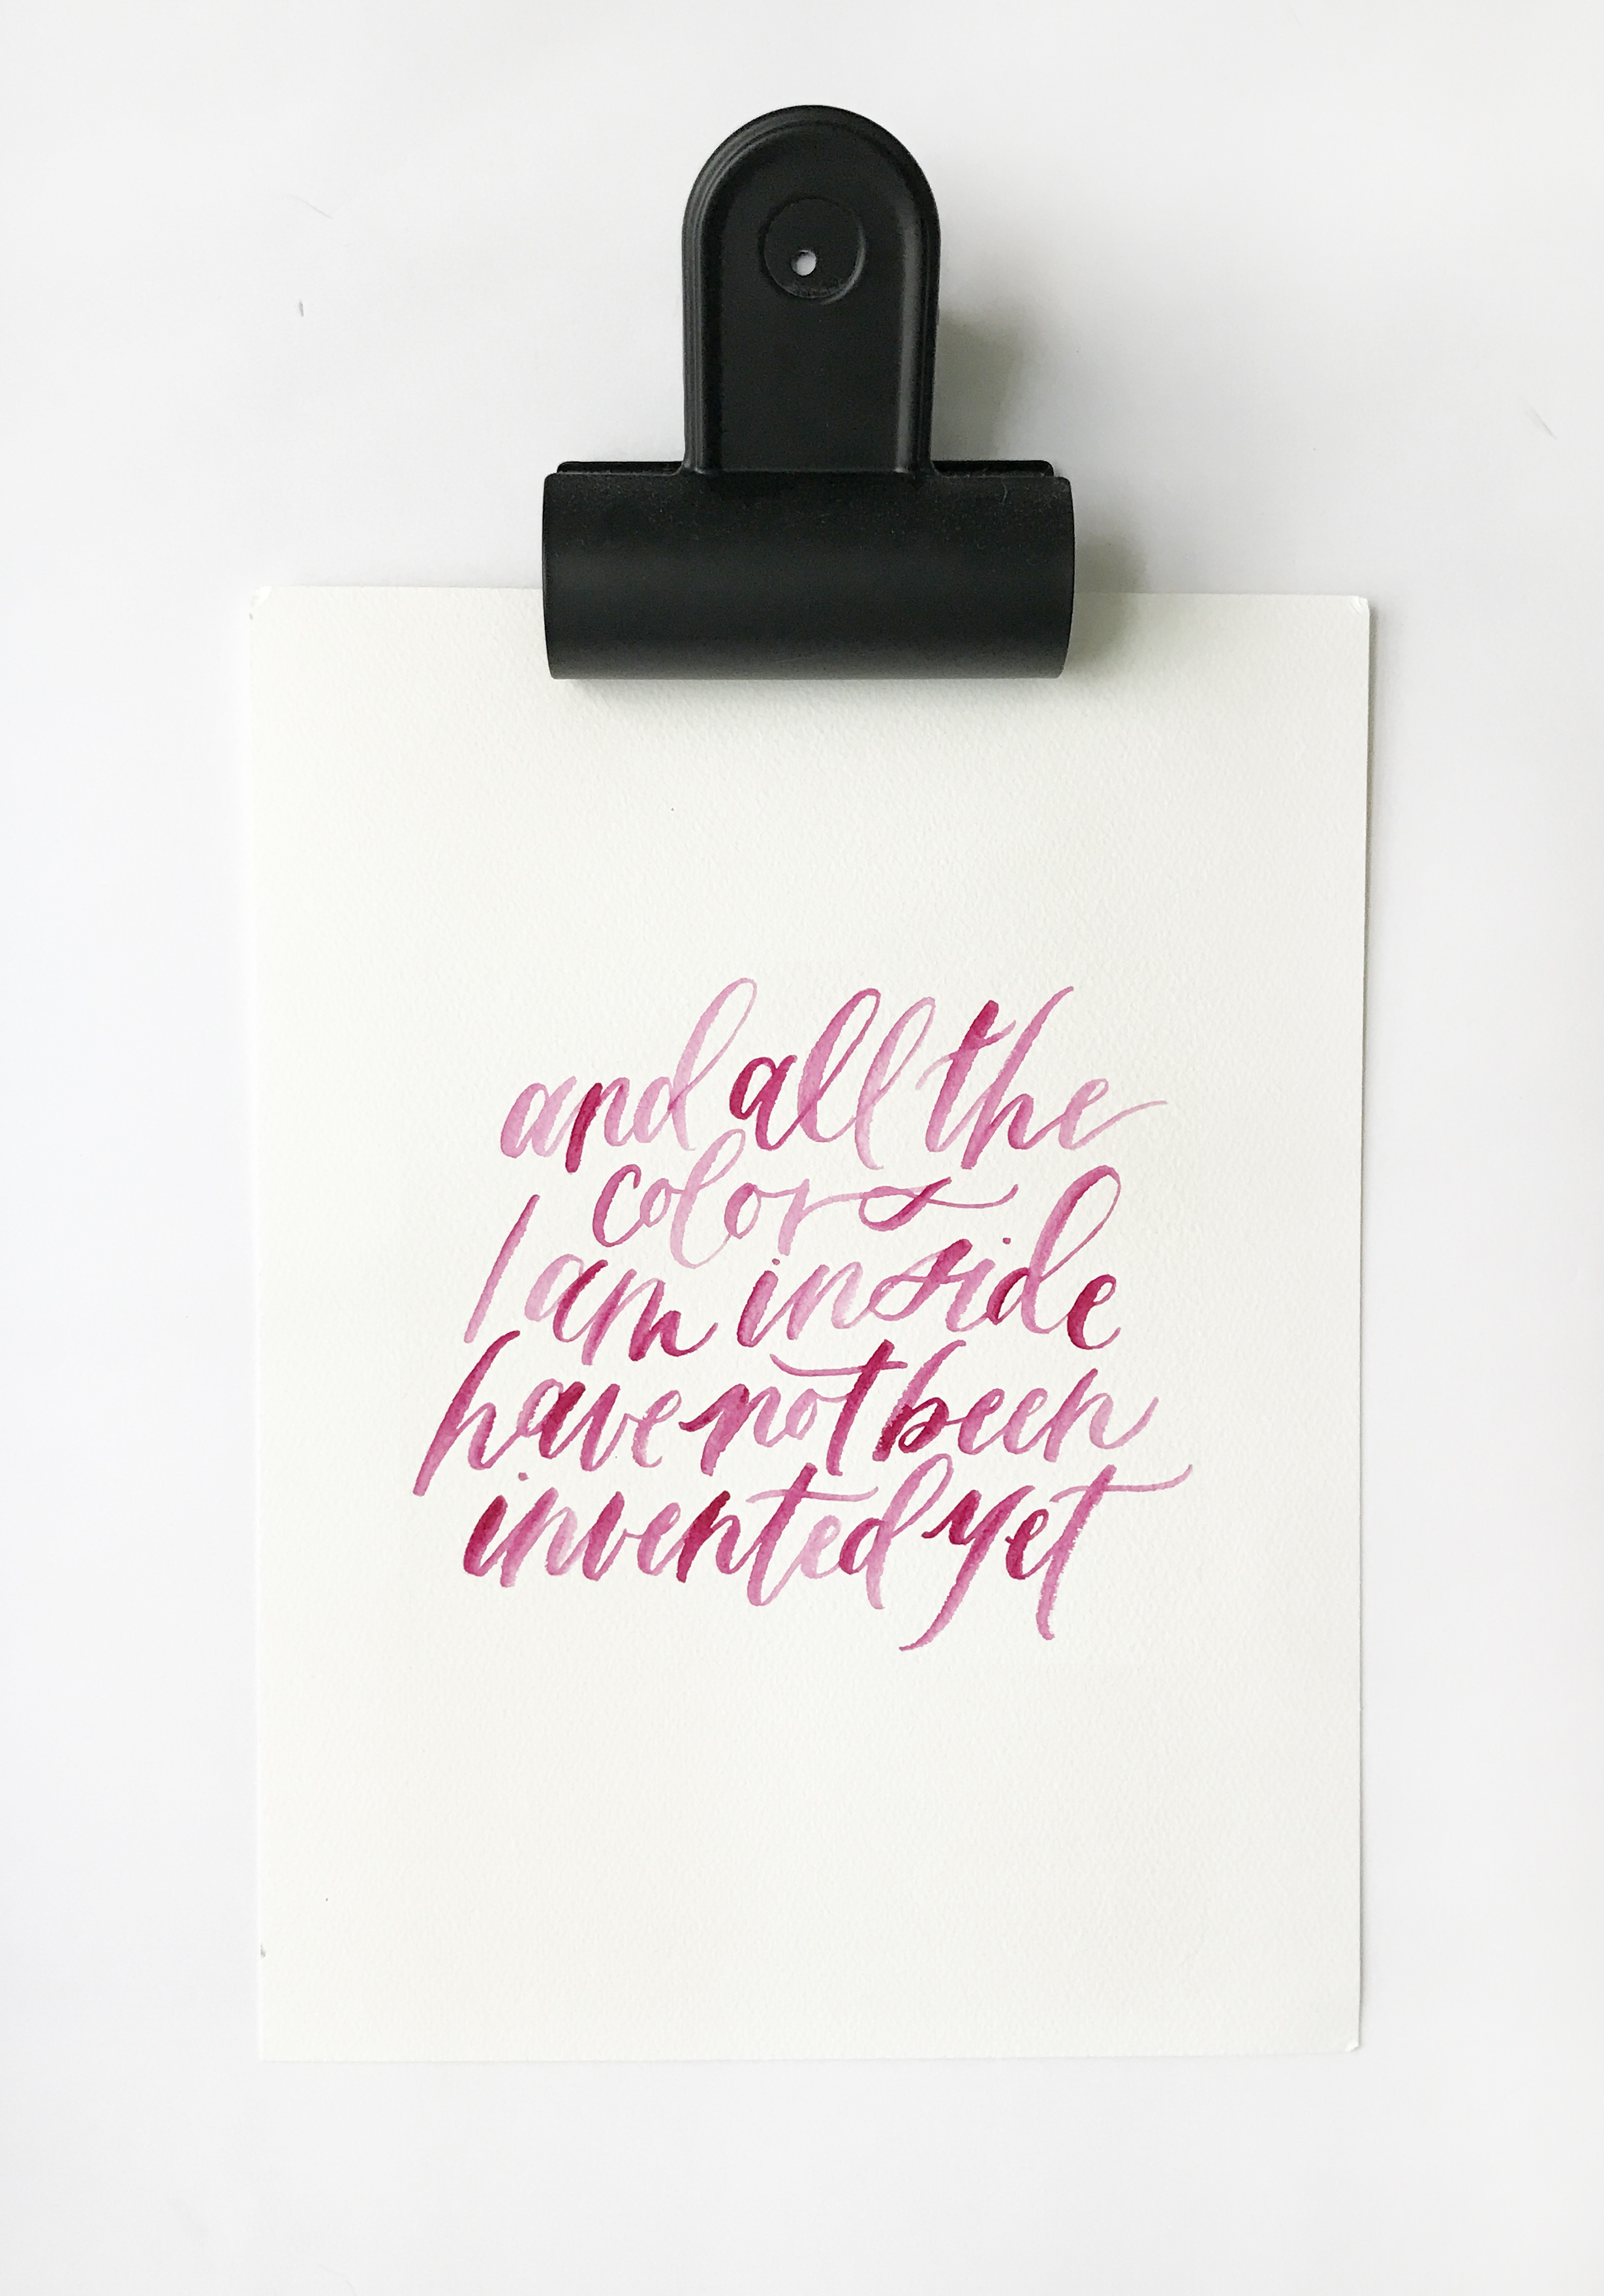 and all the
colors
I am inside
have not been
invented yet